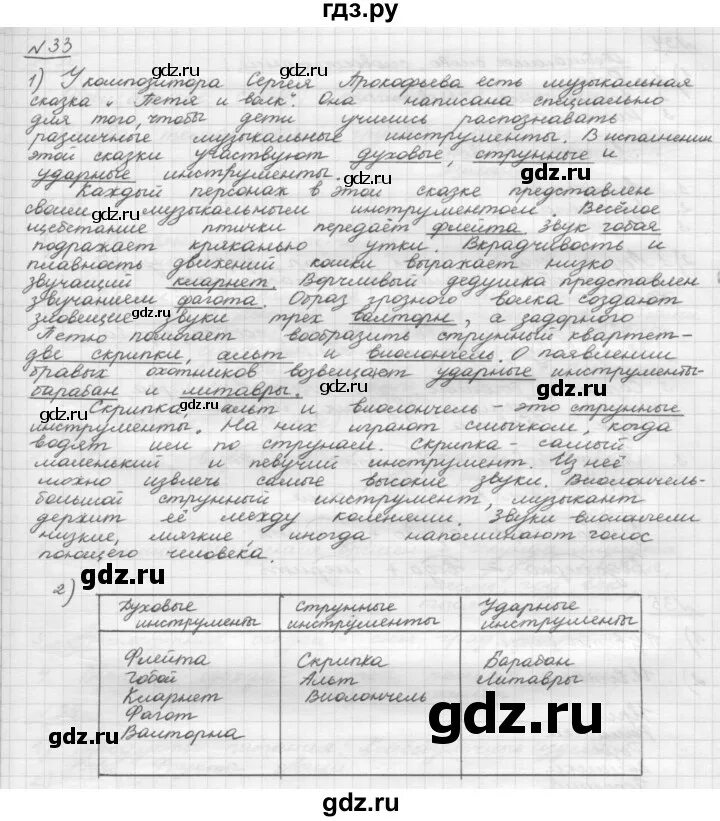 гдз.ру
№33
1) У композитора Сергея Прокофьева есть музыкальная
gdz.ru
сказка „Петя и волк". Она написана специально
gdz.ru gdz.ru
для того, чтобы дети учились распознавать
различные музыкальные инструменты. В исполнении
этой сказки участвуют духовые, струнные и
gdz.ru gdz.ru
ударные инструменты.
gdz.ru
Каждый персонаж в этой сказке представлен
своим музыкальным инструментом. Весёлое
gdz.ru
щебетание птички передаёт флейта звук гобоя
gdz.ru gdz.ru
подражает кряканью утки. Вкрадчивость и
плавность движений кошки выражает низко
звучащий кларнет. Ворчливый дедушка представлен
gdz.ru
звучанием фагота. Образ грозного волка создают
gdz.ru
зловещие звуки трёх валторн, а задорного
gdz.ru
Петю помогает вообразить струнный квартет-
две скрипки, альт и виолончель. О появлении
бравых охотников возвещают ударные инструменты-
gdz.ru gdz.ru
барабан и литавры.
gdz.ru
Скрипка, альт и виолончель – это струнные
gdz.ru gdz.ru
инструменты. На них играют смычком, когда
водят им по струнам. Скрипка – самый
маленький и певучий инструмент. Из неё
можно извлечь самые высокие звуки. Виолончель-
gdz.ru
большой струнный инструмент, музыкант
держит её между коленями. Звуки виолончели
низкие, мягкие, иногда напоминают голос
gdz.ru gdz.ru
поющего человека.
gdz.ru
2)
Духовые инструменты
Струнные инструменты
Ударные инструменты
Флейта Скрипка Барабан
Гобой Альт Литавры
Кларнет Виолончель
Фагот
Валторна
gdz.ru
gdz.ru
gdz.ru